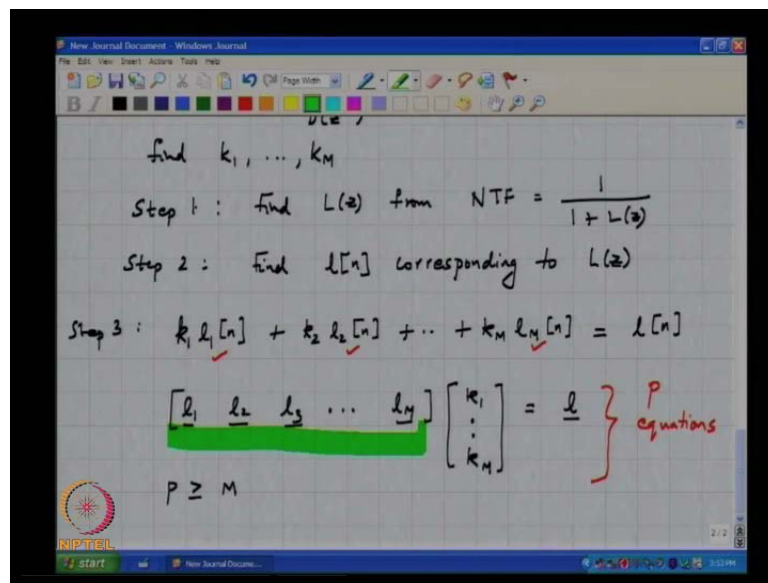 New Journal Document - Windows Journal
File Edit View Insert Actions Tools Help
Page Width
B I
find k₁, ..., k_M
Step 1 : find L(z) from NTF = 1 / (1 + L(z))
Step 2 : find l[n] corresponding to L(z)
Step 3 : k₁ l₁[n] + k₂ l₂[n] + .. + k_M l_M[n] = l[n]
[l₁ l₂ l₃ ... l_M] [k₁ : k_M] = l } P equations
P ≥ M
2/2
NPTEL
start New Journal Docume... 3:53 PM